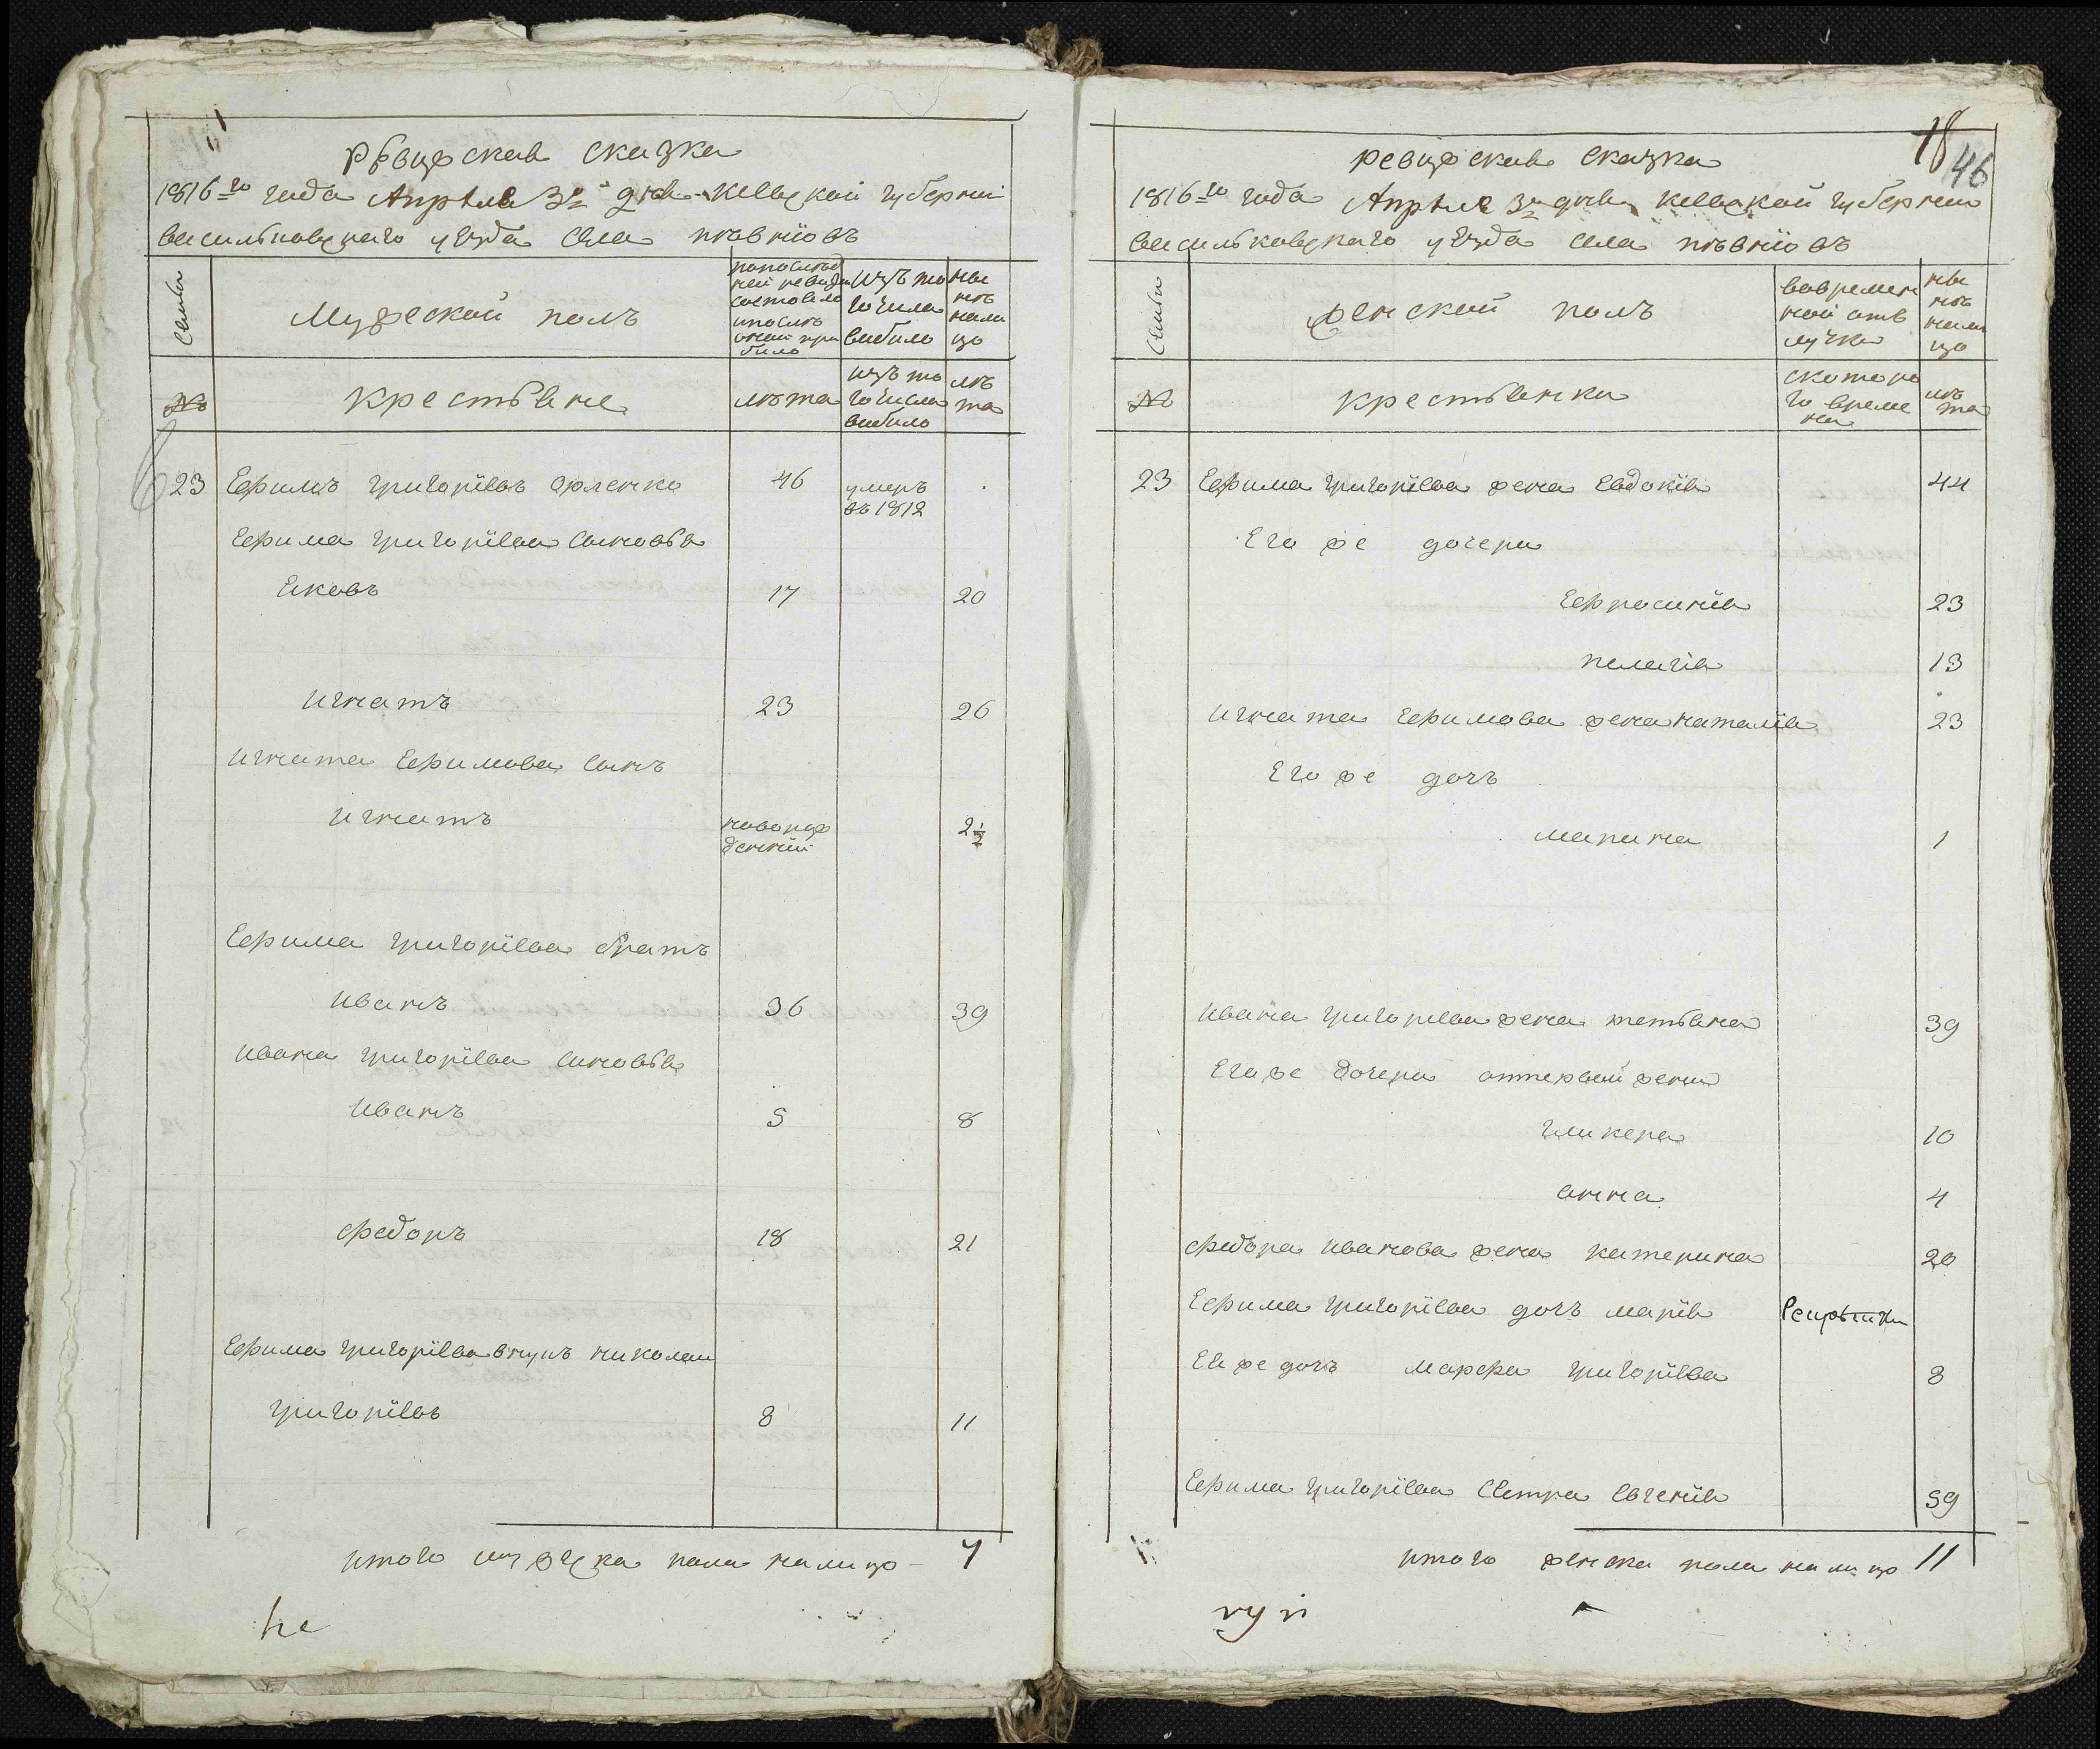 ревижская сказка
1816го года Апреля 3го дня Киевской губернии
васильковского уезда села
Семьи
Мужеской полъ
изъ то
го числа
выбыло
ны
не
нали
цо
№
крестьяне
лета
изъ то
го числа
выбыло
ле
та
23 Ефимъ григорiевъ 46 умеръ
въ 1812
Ефима григорiева сыновья
Яковъ 17 20
игнатъ 23 26
игната Ефимова сынъ
игнатъ новорож
денный 2 1/2
Ефима григорiева братъ
иванъ 36 39
ивана григорiева синовья
иванъ 5 8
федоръ 18 21
Ефима григорiева внукъ николай
григорiевъ 8 11
итого мужеска пола налицо 7
18
46
ревижская сказка
1816го года Апреля 3го дня Киевской губернии
васильковского уезда села
Семьи
женской полъ
вовремен
ной отъ
лучке
ны
не
нали
цо
№
крестьянки
скоторо
го време
ни
ле
та
23 Ефима григорiева жена Евдокiя 44
Его же дочери
Ефросинiя 23
палагiя 13
игната Ефимова жена наталiя 23
Его же дочъ
марина 1
ивана григорiева жена татьяна 39
Его же дочери отпервой жены
гликера 10
анна 4
федора иванова жена катерина 20
Ефима григорiева дочъ марiя
Ея же дочъ марфа григорiева 8
Ефима григорiева сестра Евгенiя 59
итого женска пола налицо 11